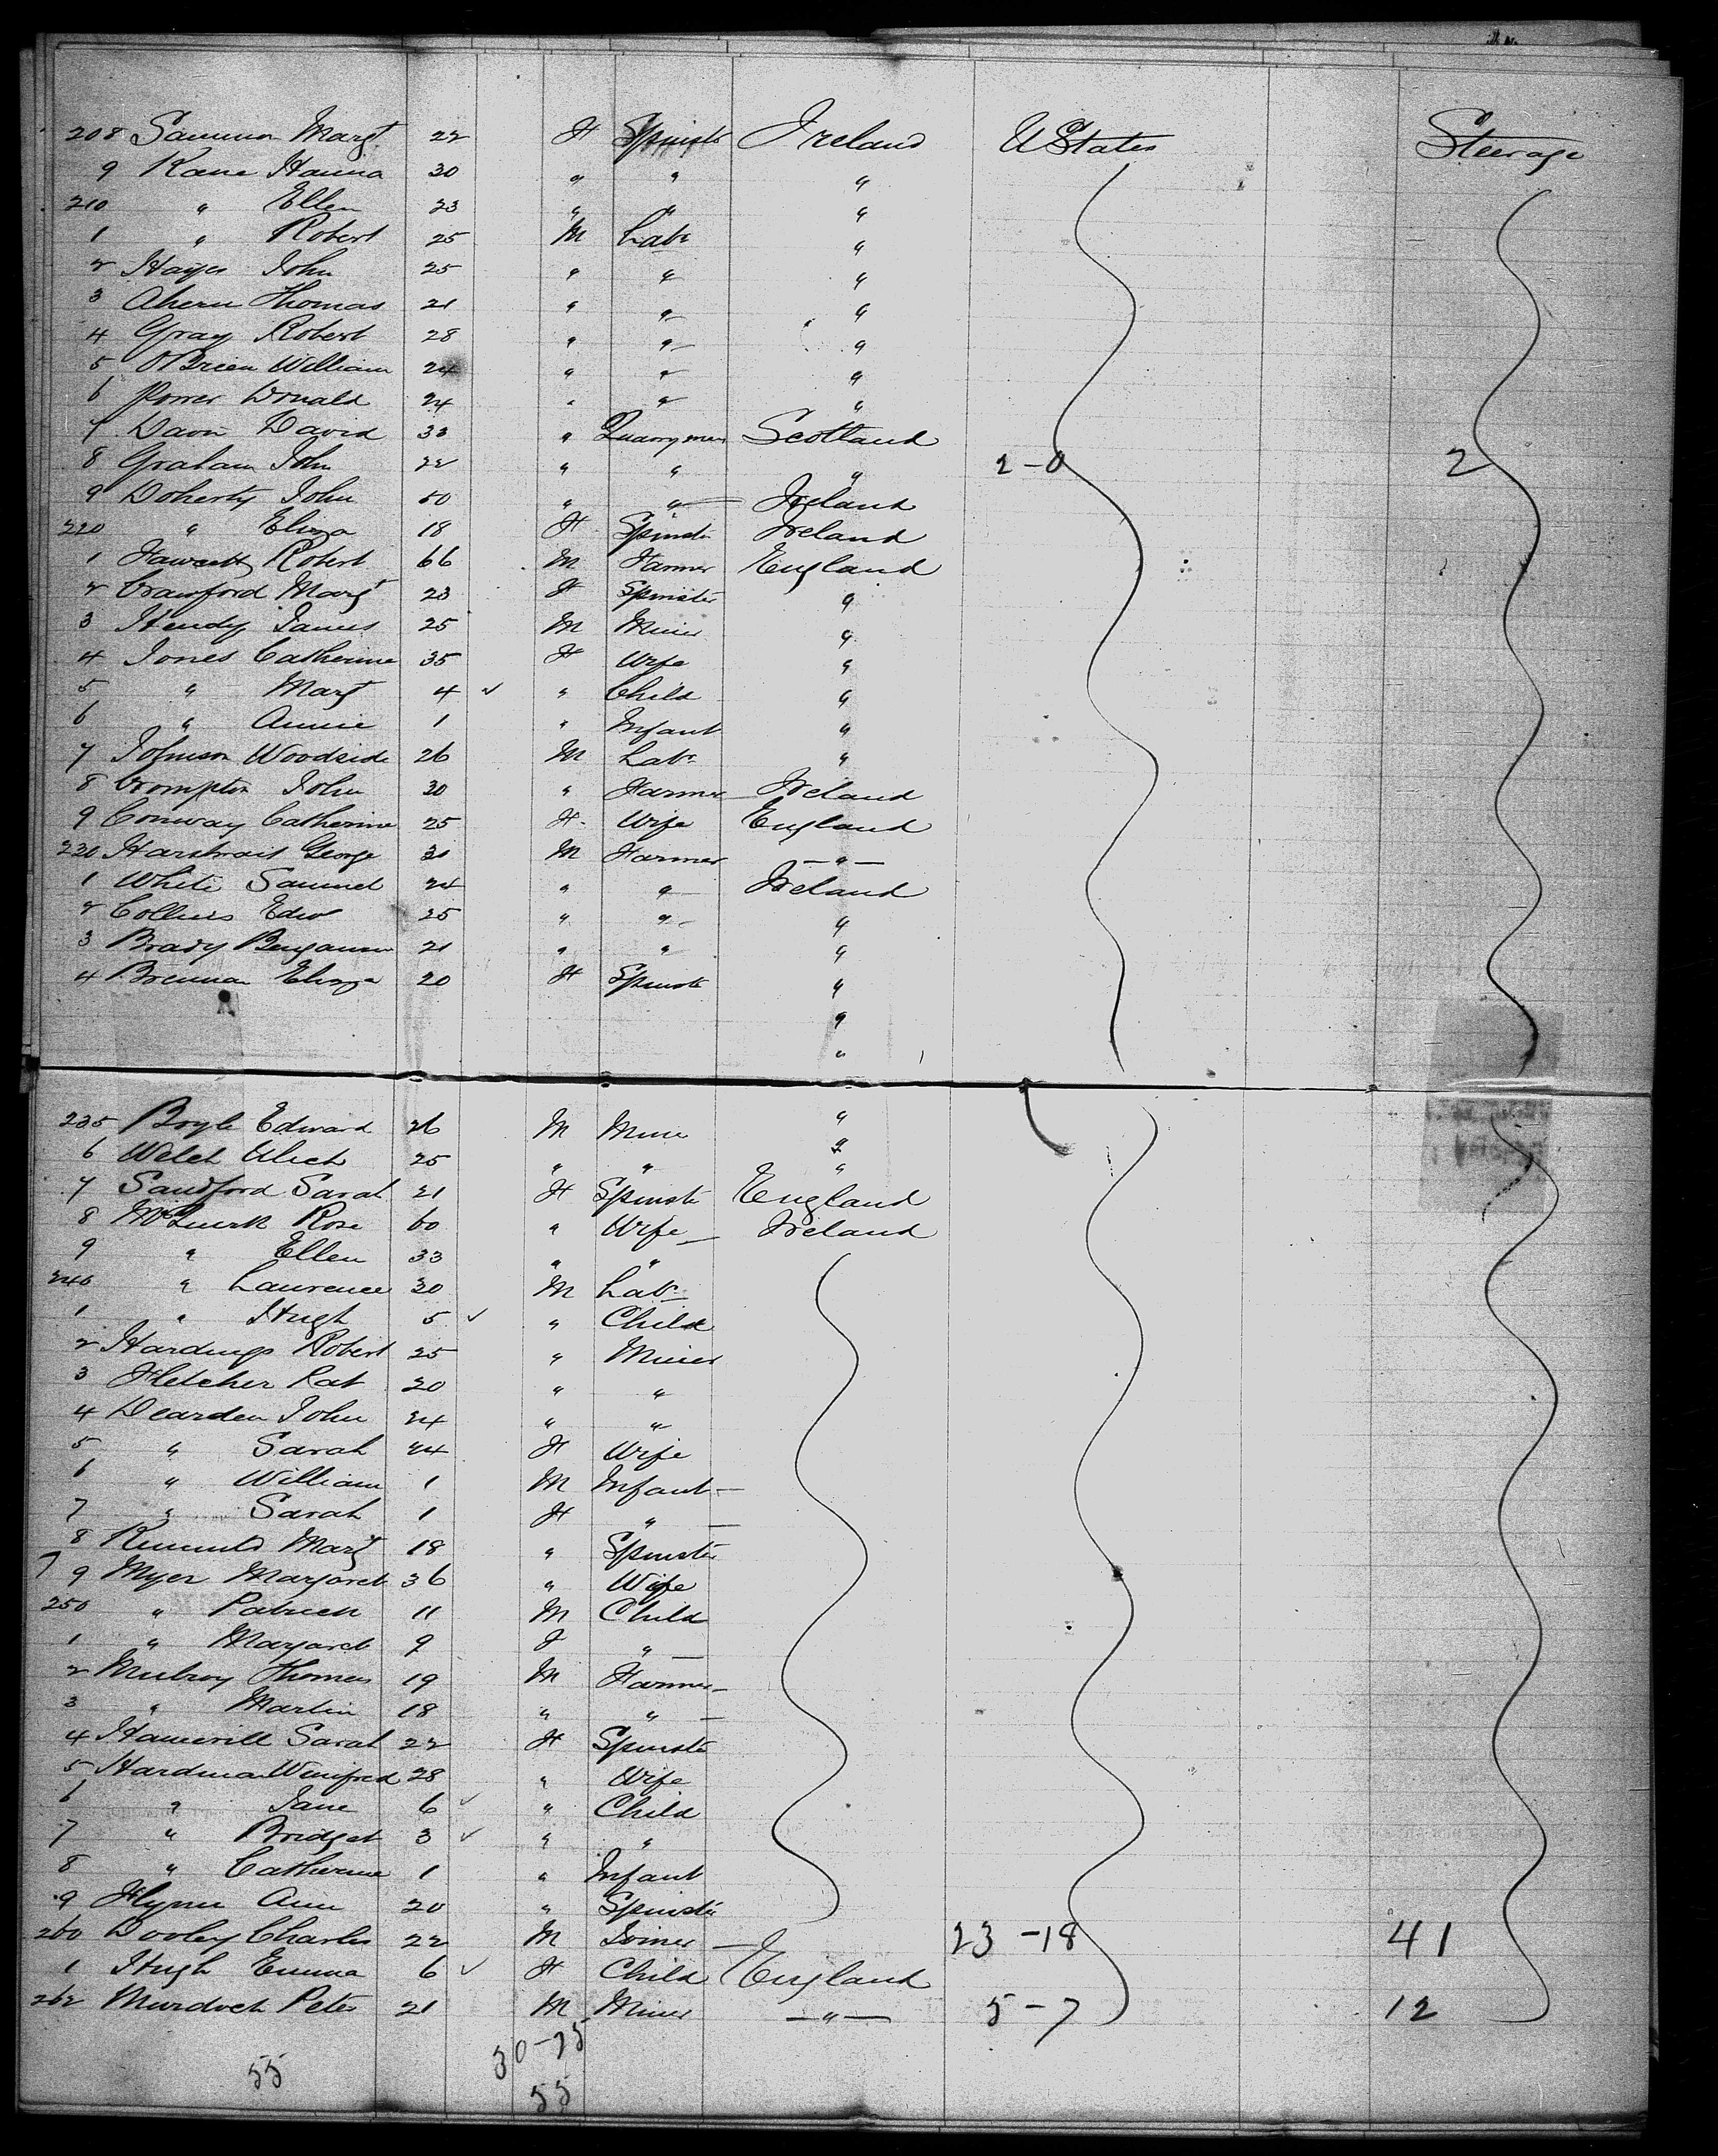 208 Sammon Margt 22 F Spinstr Ireland U States Steerage
9 Kane Hanna 30 " " "
210 " Ellen 23 " " "
1 " Robert 25 M Labr "
2 Hayes John 25 " " "
3 Ahern Thomas 21 " " "
4 Gray Robert 28 " " "
5 OBrien William 24 " " "
6 Power Donald 24 " " "
7 David 33 " Quarryman Scotland
8 Graham John 22 " " " 2-0 2
9 Doherty John 50 " " Ireland
220 " Eliza 18 F Spinstr Ireland
1 Fawcett Robert 66 M Farmer England
2 Crawford Margt 23 F Spinster "
3 Hendy James 25 M Miner "
4 Jones Catherine 35 F Wife "
5 " Margt 4 ✓ " Child "
6 " Annie 1 " Infant "
7 Johnson Woodside 26 M Labr "
8 Crompton John 30 " Farmer Ireland
9 Conway Catherine 25 F Wife England
230 George M Farmer "
1 White Samuel 24 " " Ireland
2 Collins Edwd 25 " " "
3 Brady Benjamin 21 " " "
4 Brennan Eliza 20 F Spinstr "
"
"
235 Boyle Edward 26 M Miner "
6 Welch 25 " " "
"
7 Sandford Sarah 21 F Spinstr England
8 McGuirk Rose 60 " Wife Ireland
9 " Ellen 33 " "
240 " Laurence 30 M Labr
1 " Hugh 5 ✓ " Child
2 Hardings Robert 25 " Miner
3 Fletcher Pat 20 " "
4 Dearden John 24 " "
5 " Sarah 24 F Wife
6 " William 1 M Infant
7 " Sarah 1 F "
8 Margt 18 " Spinster
7 9 Myer Margaret 36 " Wife
250 " Patrick 11 M Child
1 " Margaret 9 F "
2 Mulroy Thomas 19 M Farmer
3 " Martin 18 " "
4 Sarah 22 F Spinstr
5 Hardman Winifred 28 " Wife
6 " Jane 6 ✓ " Child
7 " Bridget 3 ✓ " "
8 " Catherine 1 " Infant
9 Flynn Ann 20 " Spinster
260 Dooley Charles 22 M Joiner 23-18 41
1 Hugh Emma 6 ✓ F Child England
262 Murdoch Peter 21 M Miner " 5-7 12
30-25
55
55